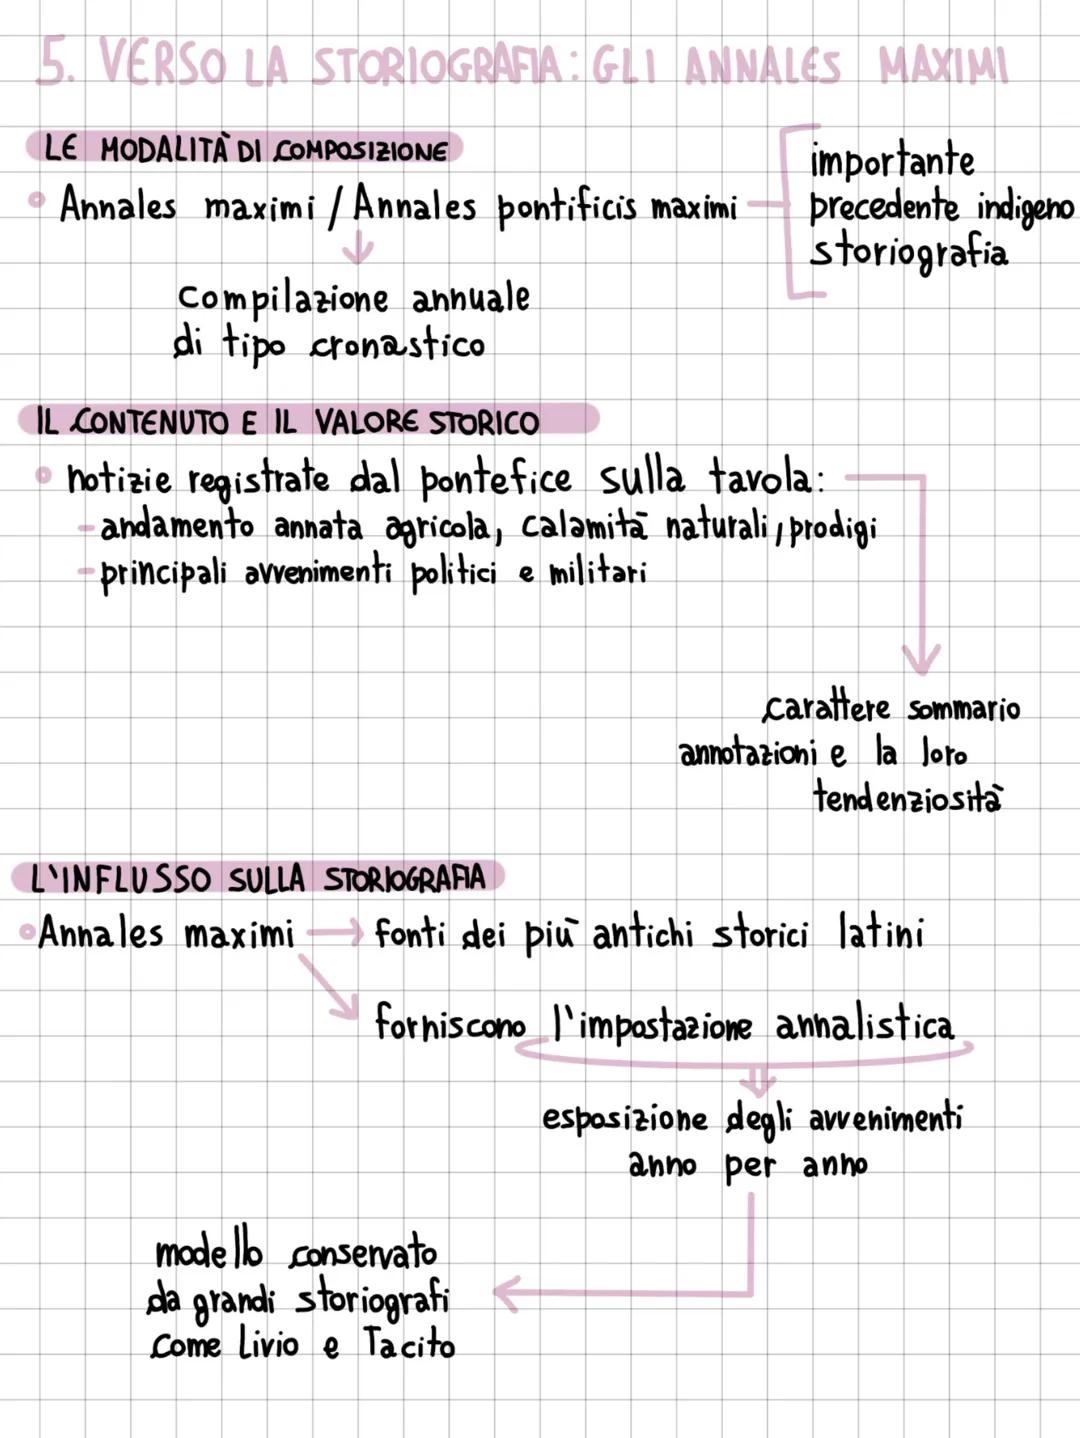 5. VERSO LA STORIOGRAFIA: GLI ANNALES MAXIMI
LE MODALITÀ DI COMPOSIZIONE
Annales maximi / Annales pontificis maximi
importante
precedente indigeno
storiografia
Compilazione annuale
di tipo cronastico
IL CONTENUTO E IL VALORE STORICO
notizie registrate dal pontefice sulla tavola:
- andamento annata agricola, calamità naturali, prodigi
- principali avvenimenti politici e militari
carattere sommario
annotazioni e la loro
tendenziosità
L'INFLUSSO SULLA STORIOGRAFIA
Annales maximi → fonti dei più antichi storici latini
forniscono l'impostazione annalistica
esposizione degli avvenimenti
anno per anno
modello conservato
da grandi storiografi
come Livio e Tacito